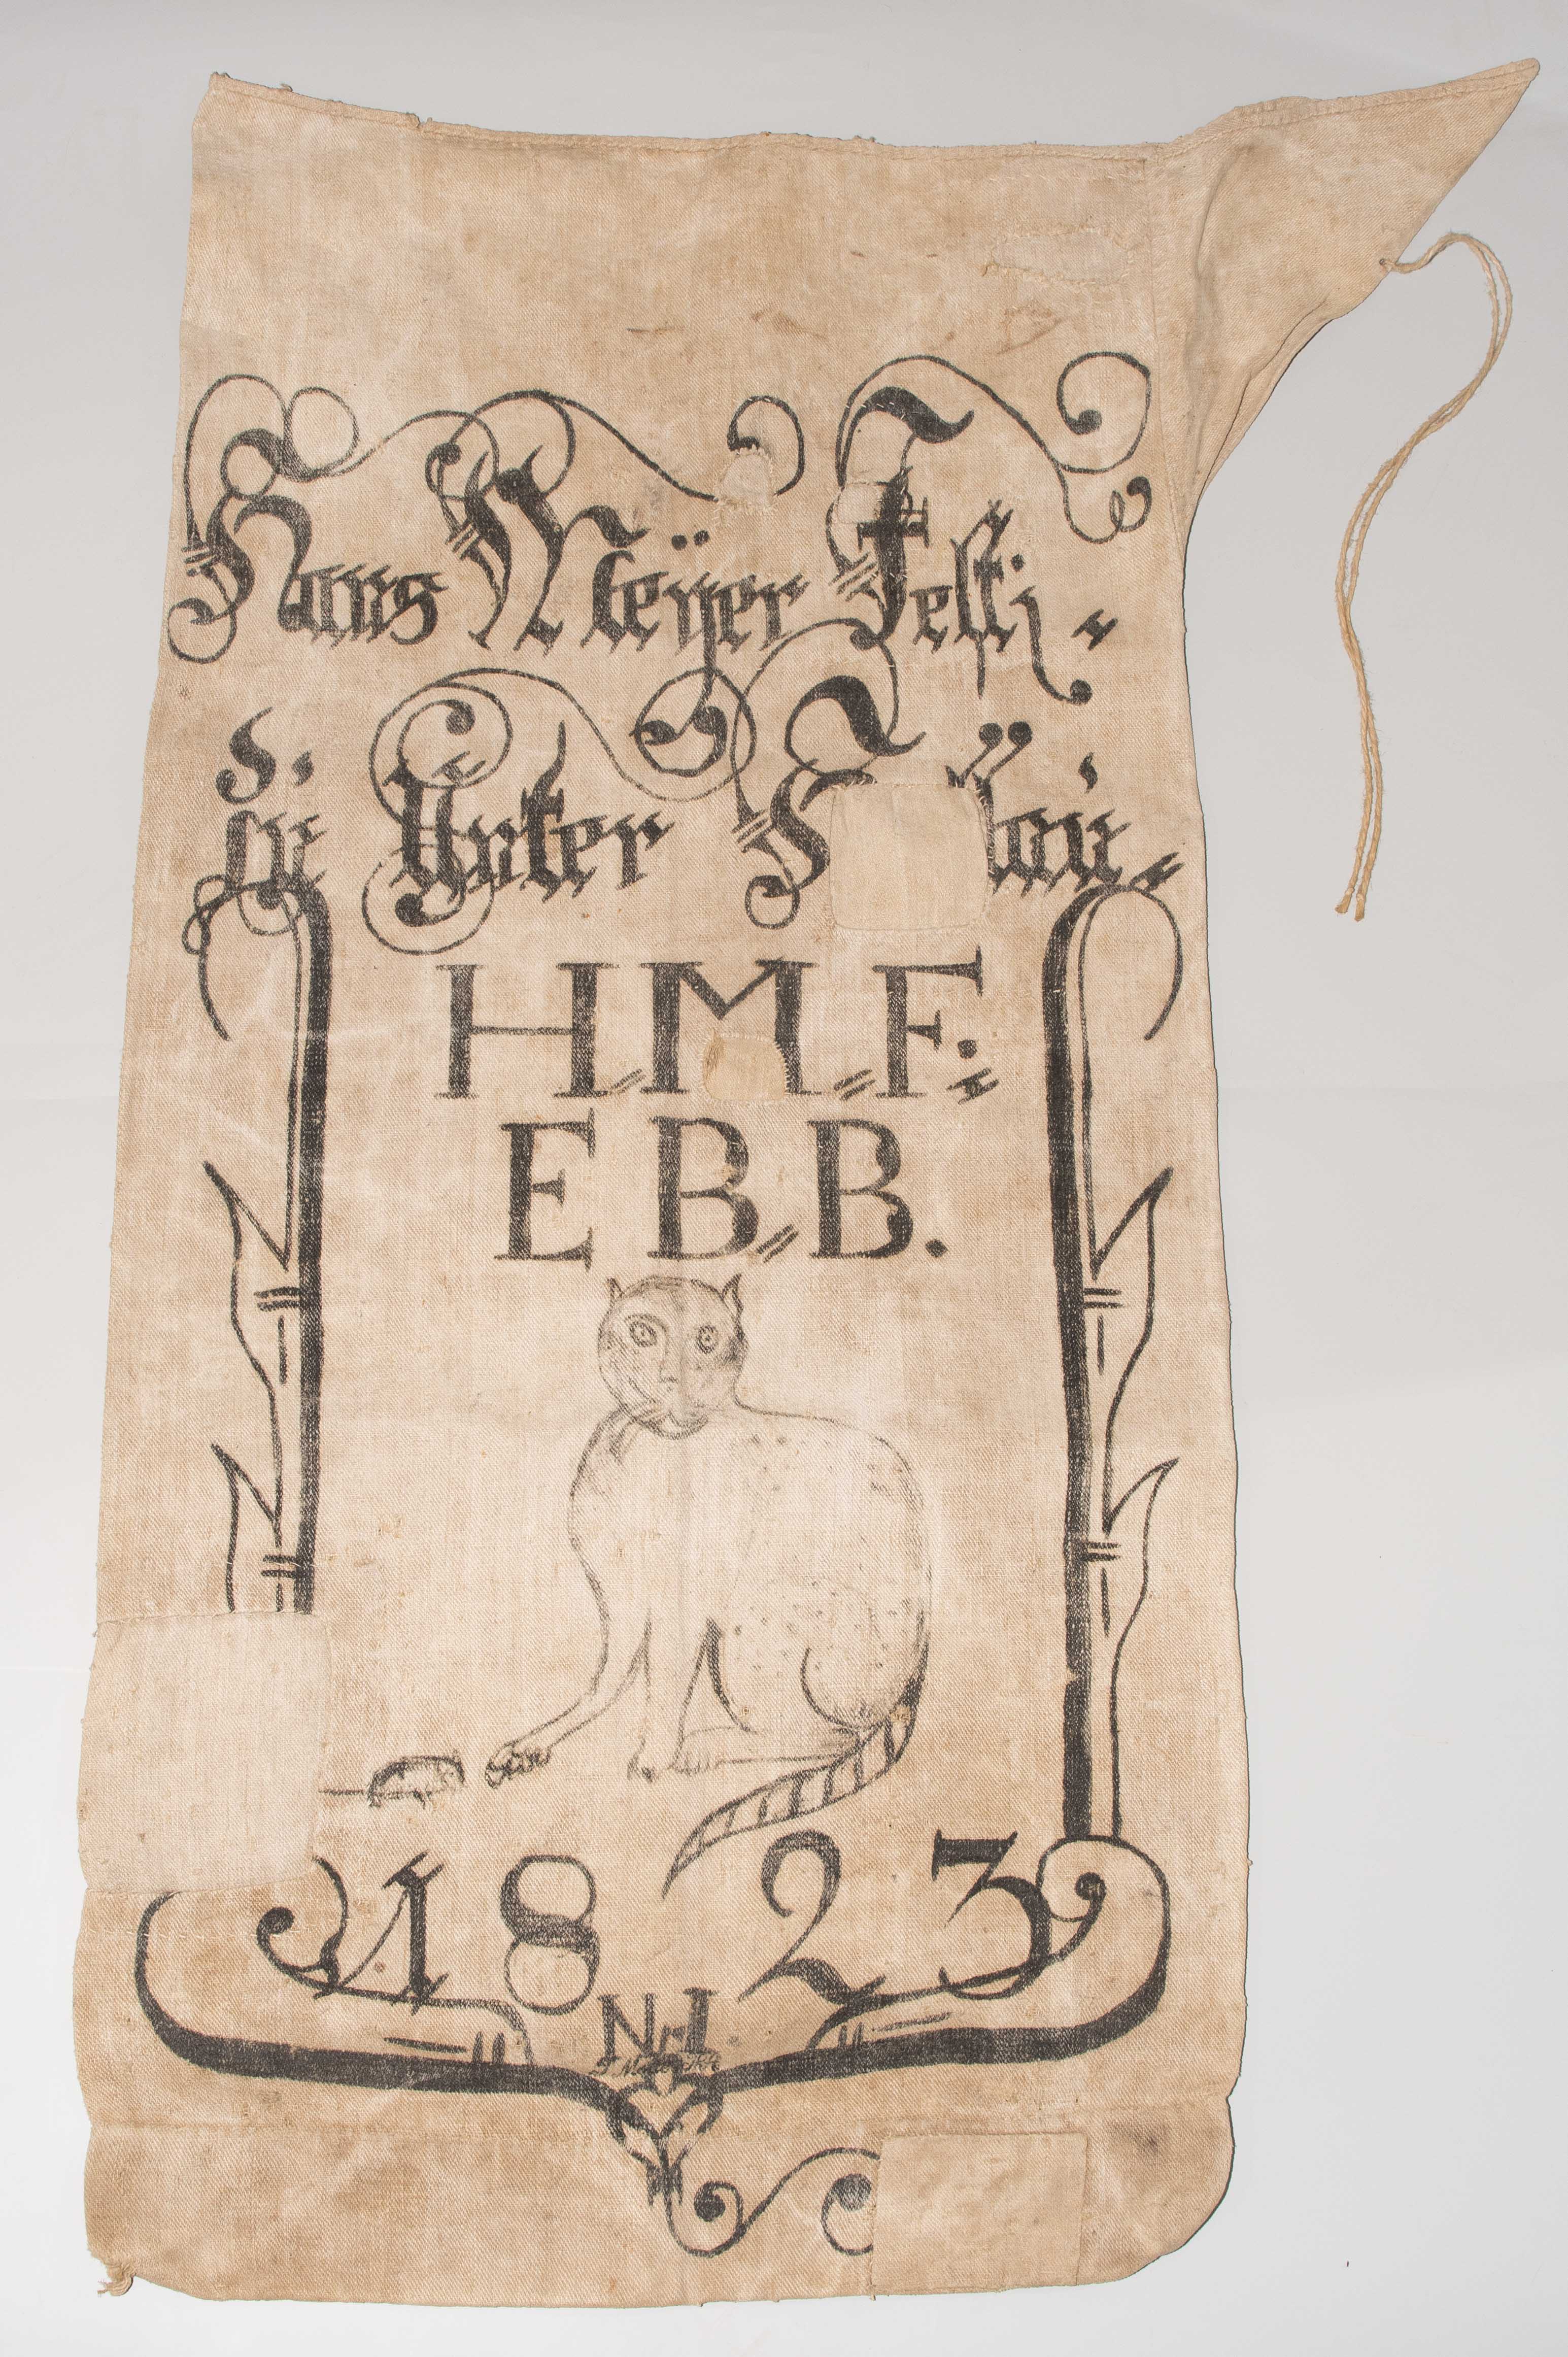 Hans Meÿer Felti=
in Unter
H=M=F:=
E B=B.
1823
N:1